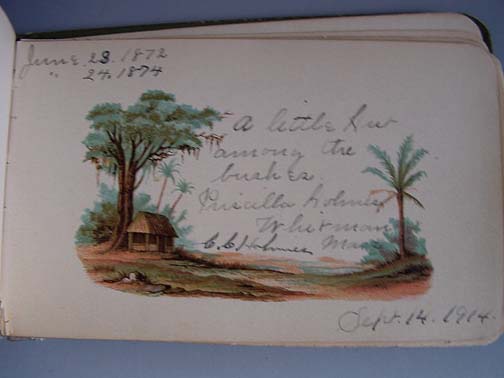 June. 23. 1872
" 24. 1874
A little Hut
among the
bushes.
Priscilla Holmes
Whitman
C. C. Holmes Mass
Sept. 14. 1914.